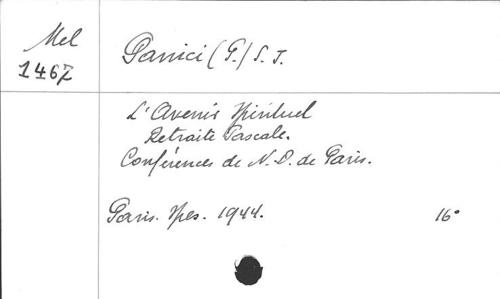 Mel
1467
Panici (P.) S. J.
L'Avenir Spirituel
Retraite Pascale.
Conférences de N.-D. de Paris.
Paris. Spes. 1944. 16°